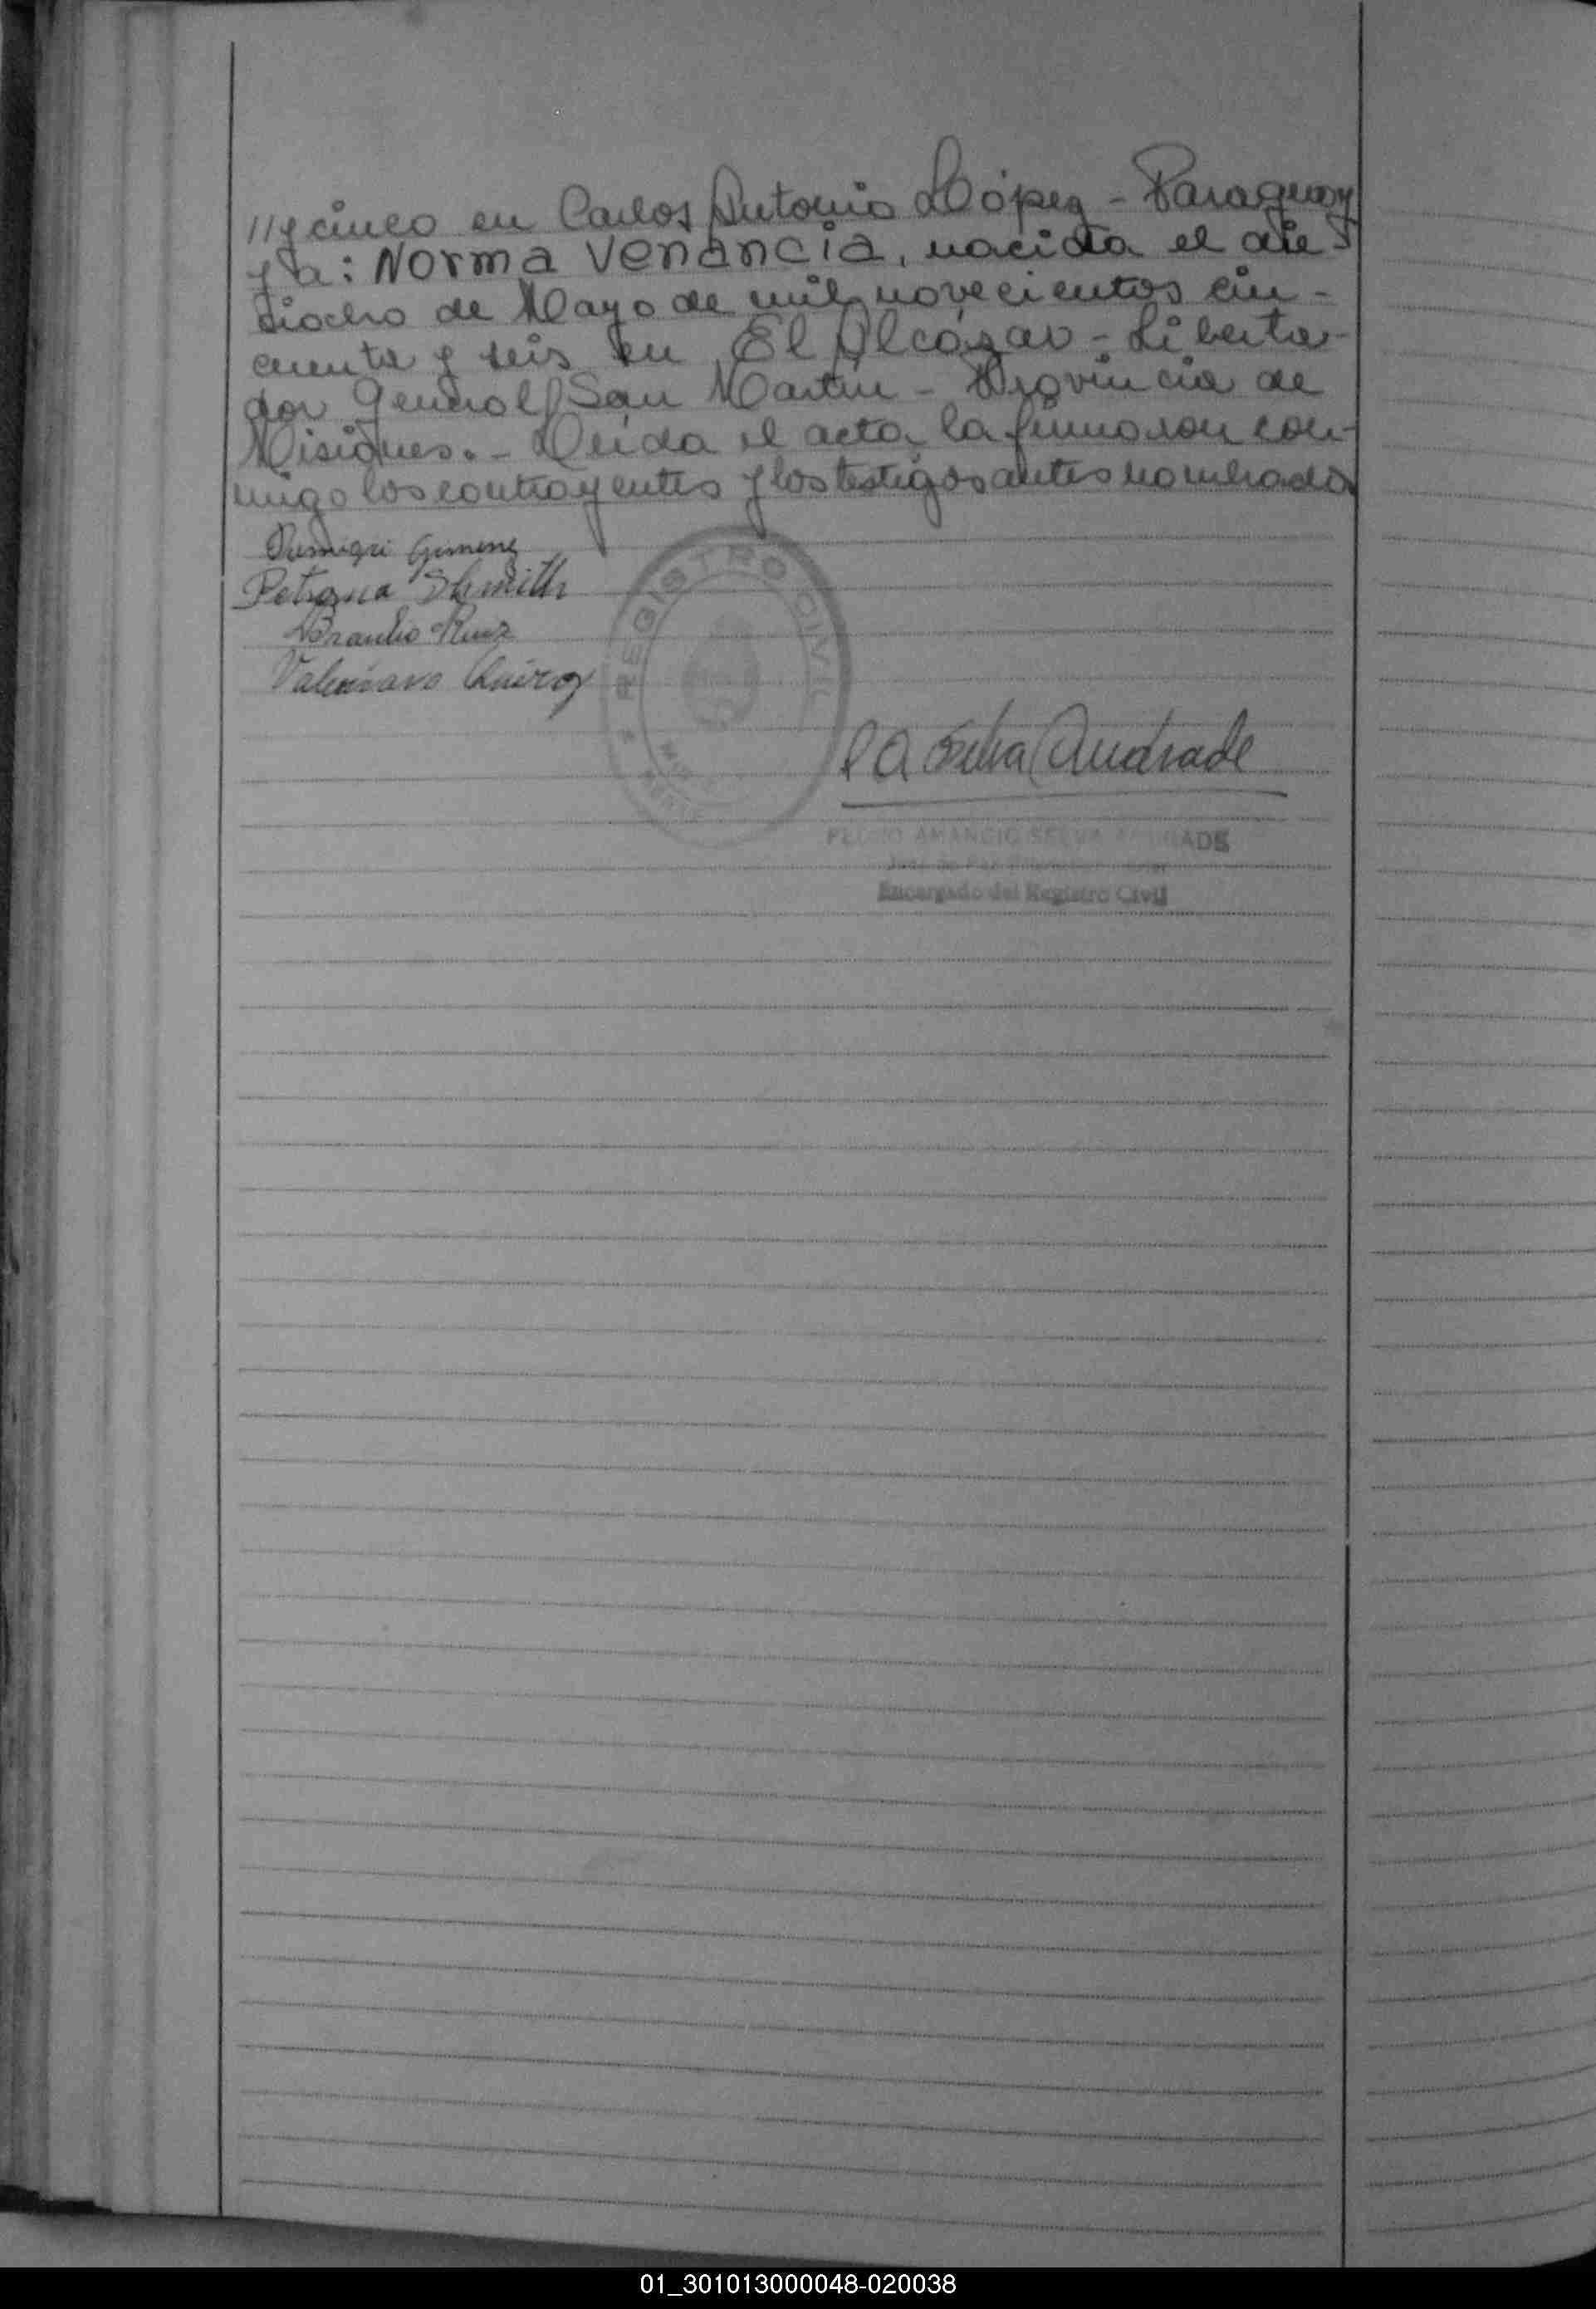 //y cinco en Carlos Antonio López - Paraguay
y a: Norma Venancia, nacida el die-
siocho de Mayo de mil novecientos cin-
cuenta y seis en El Alcázar - Liberta-
dor General San Martín - Provincia de
Misiones.- Leída el acta, la firmaron con-
migo los contrayentes y los testigos antes nombrados
Gimenz
Petrona Shmith
Braulio Ruiz
Quiroz
REGISTRO CIVIL
P A Selva Andrade
AMANCIO SELVA ANDRADE
Encargado del Registro Civil
01_301013000048-020038